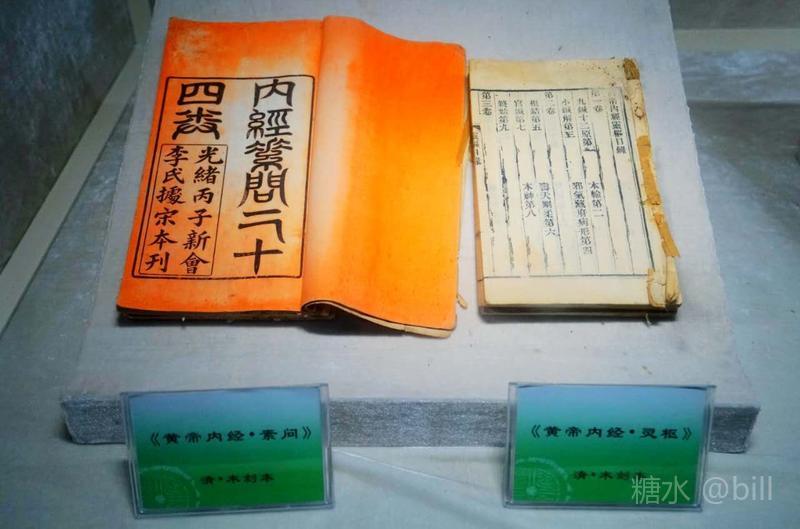 内經素問二十
四卷
光緒丙子新會
李氏據宋本刊
帝内經靈樞目錄
第一卷
九鍼十二原第一 本輸第二
小鍼解第三 邪氣藏府病形第四
第二卷
根結第五 壽夭剛柔第六
官鍼第七 本神第八
終始第九
第三卷
《黄帝内经·素问》
清·木刻本
《黄帝内经·灵枢》
清·木刻本
糖水 @bill